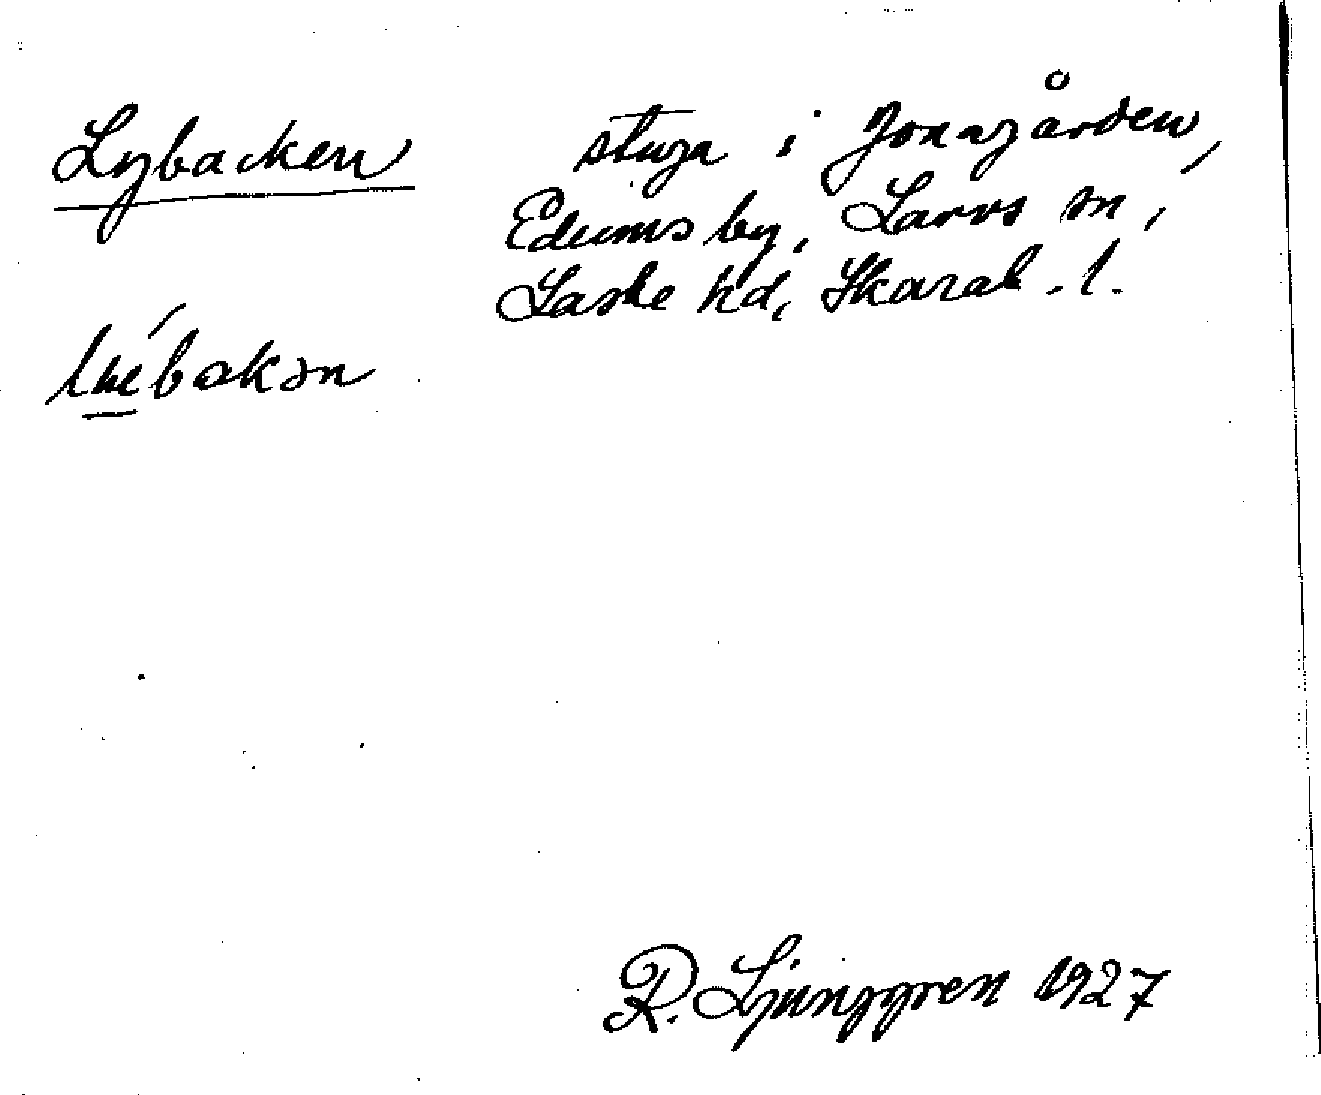 Lybacken
stuga i Jonagården,
Edums by, Larvs sn,
Laske hd, Skarab. l.
R. Ljunggren 1927